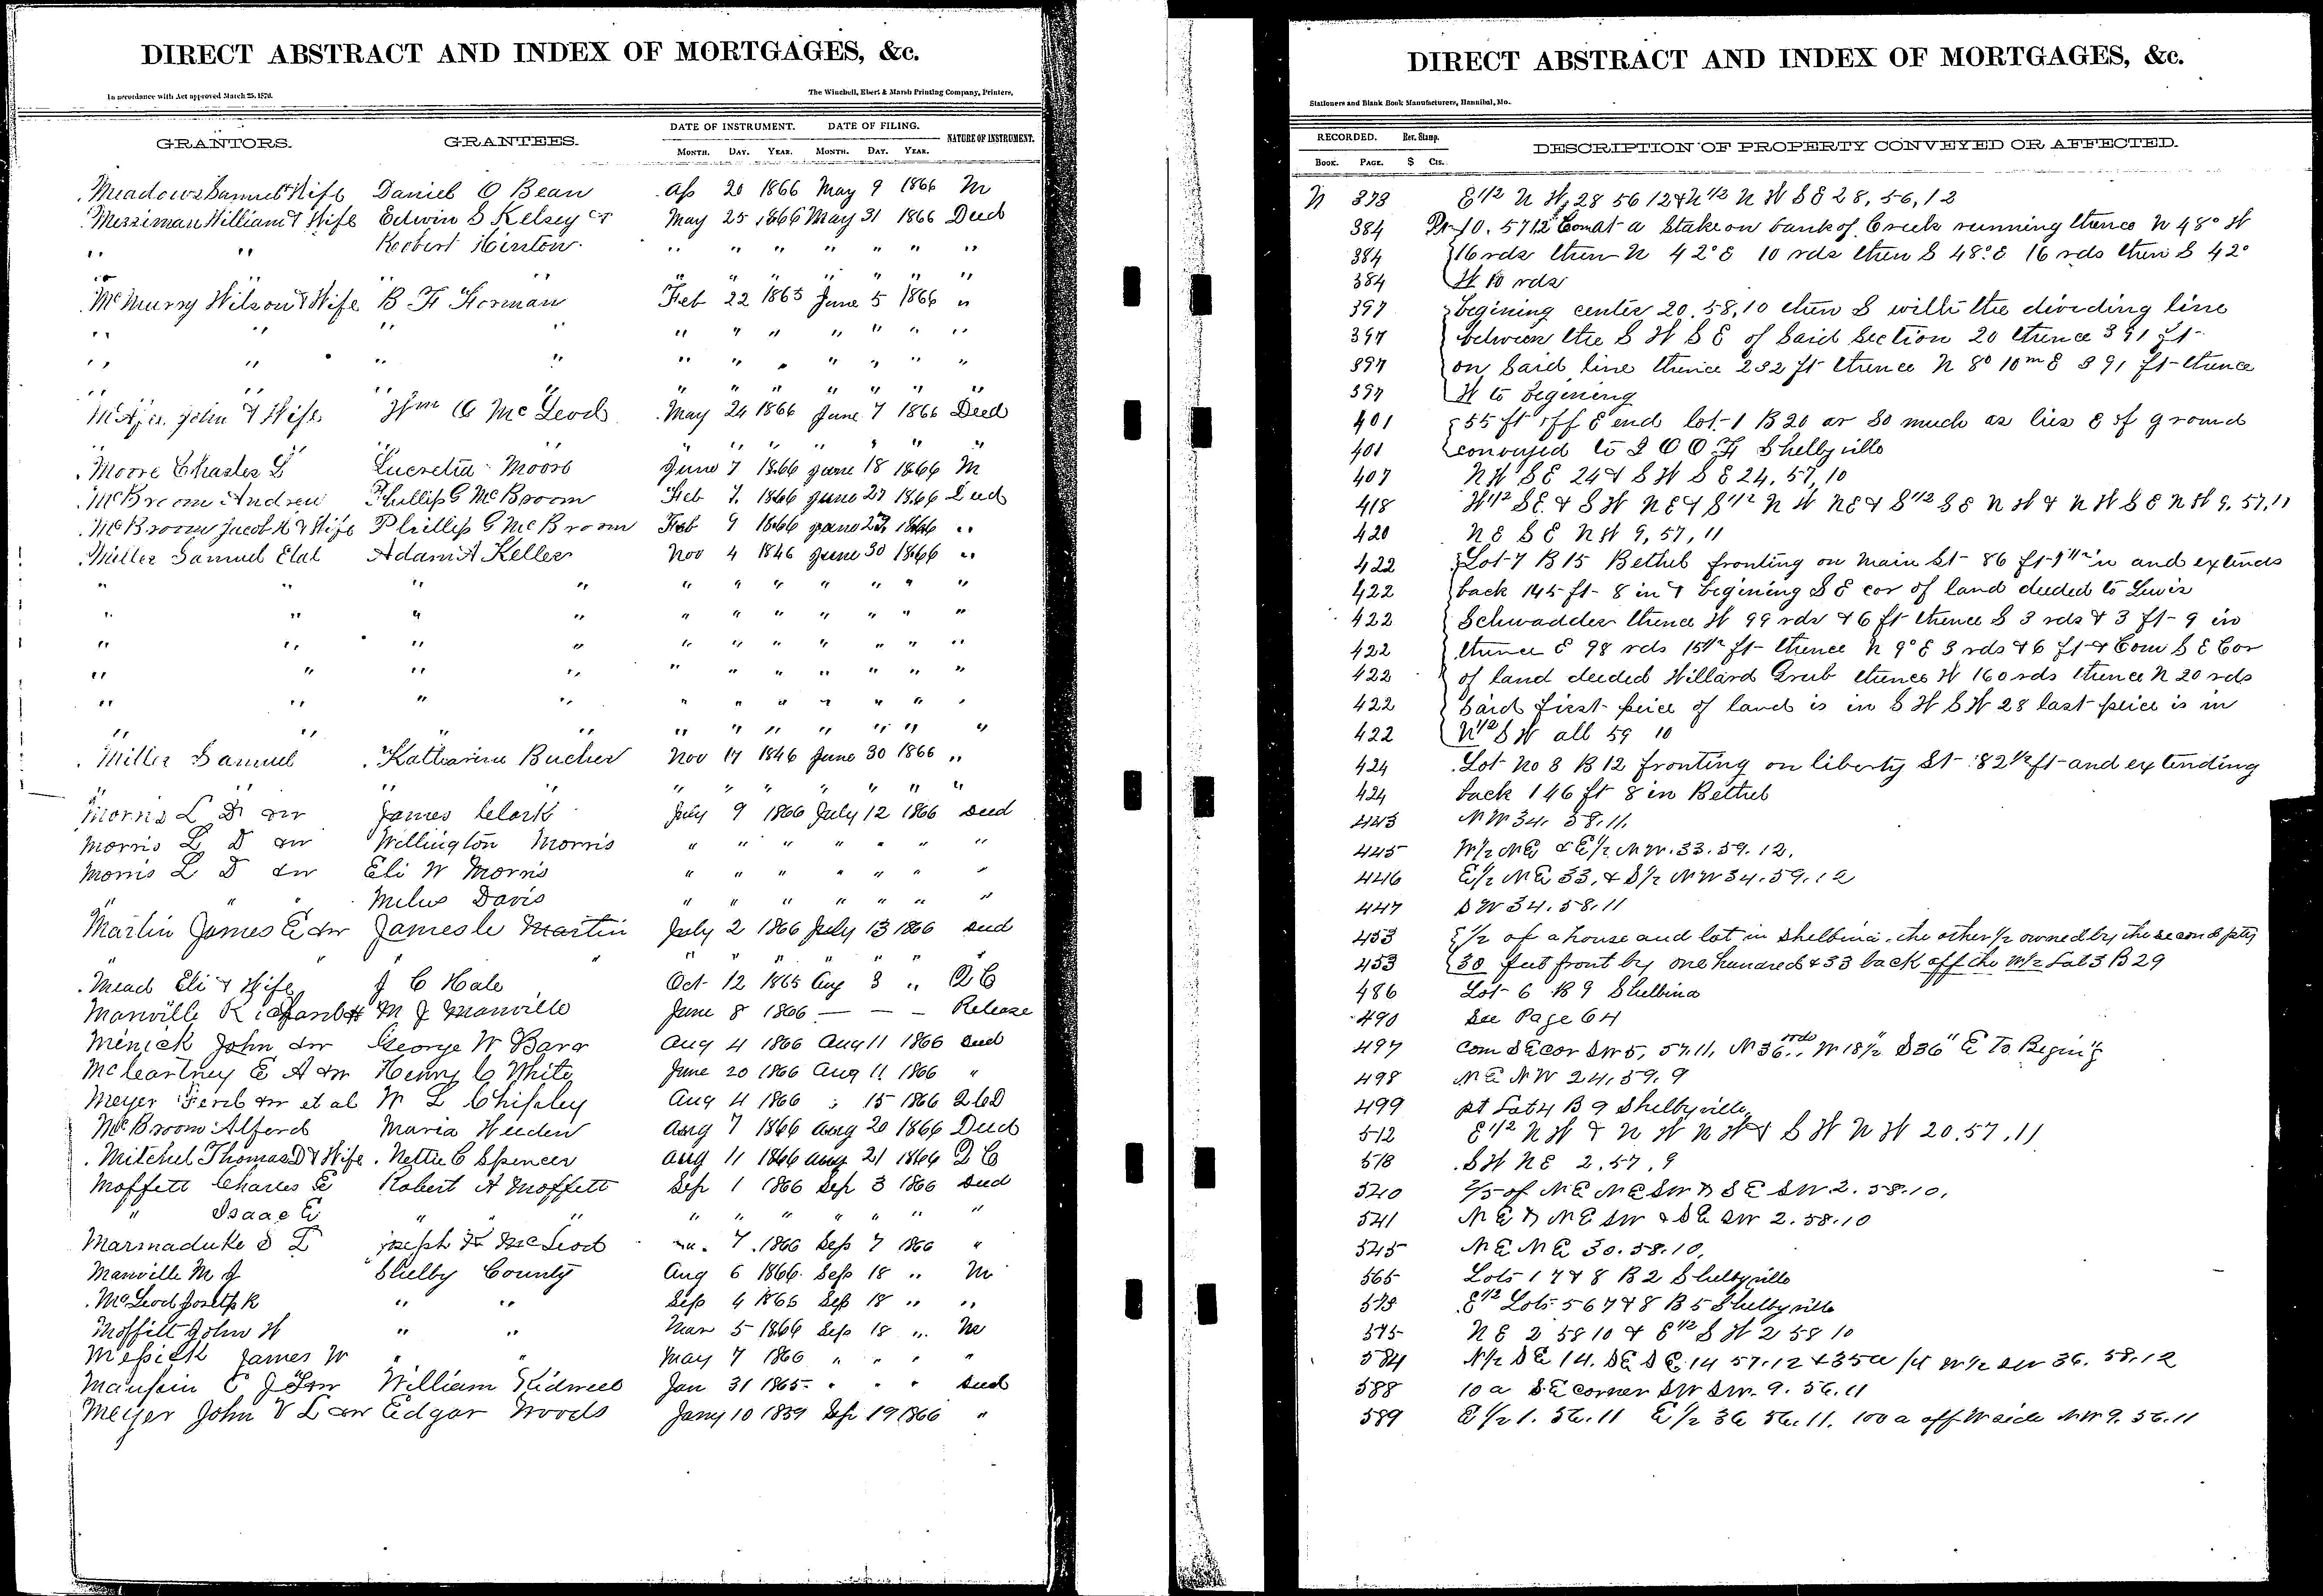 DIRECT ABSTRACT AND INDEX OF MORTGAGES, &c.
In accordance with Act approved March 25, 1870.
The Winchell, Ebert & Marsh Printing Company, Printers,
GRANTORS. GRANTEES. DATE OF INSTRUMENT. DATE OF FILING. NATURE OF INSTRUMENT.
MONTH. DAY. YEAR. MONTH. DAY. YEAR.
Meadows Samuel & Wife Daniel O Bean Ap 20 1866 May 9 1866 M
Merriman William & Wife Edwin S Kelsey & May 25 1866 May 31 1866 Deed
" " Robert Hinton " " " " " " "
" " " " " " " " " " "
McMurry Wilson & Wife B F Forman Feb 22 1865 June 5 1866 "
" " " " " " " " " " "
" " " " " " " " " " "
" " " " " " " " " " "
John & Wife Wm O McLeod May 24 1866 June 7 1866 Deed
" " " " " " " " " " "
Moore Charles L Lucretia Moore June 7 1866 June 18 1866 M
McBroom Andrew Phillip G McBroom Feb 7 1866 June 27 1866 Deed
McBroom Jacob H & Wife Phillip G McBroom Feb 9 1866 June 27 1866 "
Miller Samuel Etal Adam A Keller Nov 4 1846 June 30 1866 "
" " " " " " " " " " "
" " " " " " " " " " "
" " " " " " " " " " "
" " " " " " " " " " "
" " " " " " " " " " "
" " " " " " " " " " "
Miller Samuel Katharine Bucher Nov 17 1846 June 30 1866 "
" " " " " " " " " "
Morris L D & w James Clark July 9 1866 July 12 1866 Deed
Morris L D & w Wellington Morris " " " " " " "
Morris L D & w Eli W Morris " " " " " " "
" " " Milus Davis " " " " " " "
Martin James E & w James C Martin July 2 1866 July 13 1866 Deed
" " " " " " " "
Mead Eli & Wife J C Hale Oct 12 1865 Aug 3 " Q C
Manville M J Manville June 8 1866 — — — Release
Menick John & w George W Barr Aug 4 1866 Aug 11 1866 Deed
McCartney E A & w Henry C White June 20 1866 Aug 11 1866 "
Meyer Ferd & w et al W L Chipley Aug 4 1866 " 15 1866 Q C D
McBroom Alford Maria Weeden Aug 7 1866 Aug 20 1866 Deed
Mitchel Thomas D & Wife Nettie C Spencer Aug 11 1866 Aug 21 1866 Q C
Moffett Charles E Robert A Moffett Sep 1 1866 Sep 3 1866 Deed
" Isaac E " " " " " " " " "
Marmaduke D L Joseph R McLeod 7 1866 Sep 7 1866 "
Manville M J Shelby County Aug 6 1866 Sep 18 " M
McLeod Joseph R " " Sep 4 1865 Sep 18 " "
Moffitt John H " " Mar 5 1866 Sep 18 " M
Messick James W " " May 7 1866 " " " "
Manpin C J & w William Kidwell Jan 31 1865 " " " Deed
Meyer John V L & w Edgar Woods Jany 10 1859 Sep 19 1866 "
DIRECT ABSTRACT AND INDEX OF MORTGAGES, &c.
Stationers and Blank Book Manufacturers, Hannibal, Mo.
RECORDED. Rev. Stamp. DESCRIPTION OF PROPERTY CONVEYED OR AFFECTED.
BOOK. PAGE. $ Cts.
N 373 E 1/2 N W 28 56 12 & N 1/2 N W S E 28, 56, 12
384 Pr 10. 57 12 Com at a Stake on bank of Creek running thence N 48° W
384 16 rds then N 42° E 10 rds then S 48° E 16 rds then S 42°
384 W 10 rds
397 begining center 20, 58, 10 then S with the dividing line
397 between the S W S E of Said Section 20 thence 391 ft
397 on Said line thence 232 ft thence N 8° 10m E 391 ft thence
397 W to begining
401 55 ft off E end lot 1 B 20 or So much as lies E of ground
401 conveyed to I O O F Shelbyville
407 N W S E 24 & S W S E 24, 57, 10
418 W 1/2 S E & S W N E & S 1/2 N W N E & S 1/2 S E N W & N W S E N W 9, 57, 11
420 N E S E N W 9, 57, 11
422 Lot 7 B 15 Bethel fronting on Main St 86 ft in and extends
422 back 145 ft 8 in & begining S E cor of land deeded to Lewis
422 Schwadder thence W 99 rds & 6 ft thence S 3 rds & 3 ft 9 in
422 thence E 98 rds 15 1/2 ft thence N 9° E 3 rds & 6 ft & Com S E Cor
422 of land deeded Willard Grub thence W 160 rds thence N 20 rds
422 Said first peice of land is in S W S W 28 last peice is in
422 N 1/2 S W all 59 10
424 Lot No 8 B 12 fronting on liberty St 82 1/2 ft and extending
424 back 146 ft 8 in Bethel
443 N W 34. 58. 11.
445 W 1/2 N E & E 1/2 N W. 33. 59. 12.
446 E 1/2 N E 33, & S 1/2 N W 34. 59. 12
447 S W 34. 58. 11
453 1/2 of a house and lot in Shelbina, the other 1/2 owned by the second party
453 30 feet front by one hundred & 33 back off the W 1/2 Lot 3 B 29
486 Lot 6 B 9 Shelbina
490 See Page 64
497 Com S E cor S W 5, 57. 11, N 36 rds W 18 1/2 S 36 " E To Begin'g
498 N E N W 24, 59, 9
499 pt Lot 4 B 9 Shelbyville
512 E 1/2 N W & N W N W & S W N W 20, 57, 11
518 S W N E 2, 57, 9
540 2/5 of N E N E S W & S E S W 2. 58. 10.
541 N E & N E S W & S E S W 2. 58. 10
545 N E N E 30. 58. 10.
565 Lots 1 7 & 8 B 2 Shelbyville
573 E 1/2 Lots 5 6 7 & 8 B 5 Shelbyville
575 N E 2 58 10 & E 1/2 S W 2 58 10
584 N 1/2 S E 14. S E S E 14 57. 12 & 35 a W 1/2 S W 36. 58. 12
588 10 a S. E corner S W S W. 9. 56. 11
589 E 1/2 1. 56. 11 E 1/2 36 56. 11. 100 a off W side N W 9. 56. 11